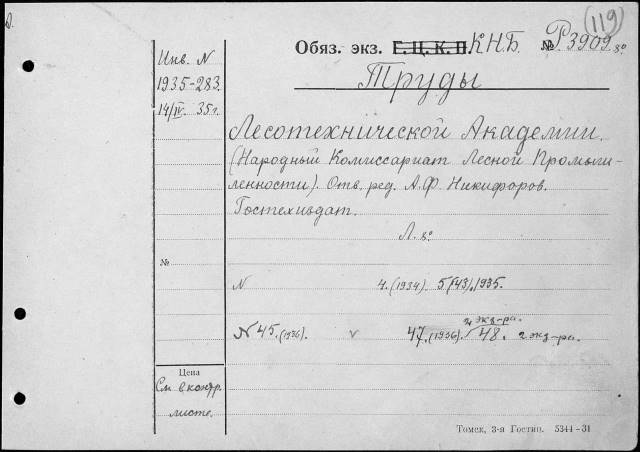 119
Обяз. экз. Г. Ц. К. П. К.Н.Б. № Р3909 8°
Инв. N
1935-283.
14/IV 35 г.
Труды
Лесотехнической Академии.
(Народный Комиссариат Лесной Промыш-
ленности). Отв. ред. А.Ф. Никифоров.
Гостехиздат.
Л. 8°
№
N 4.(1934) 5(43),1935.
2 экз-ра.
N 45.(1936). v 47.(1936). 48. 2 экз-ра.
Цена
См. в контр.
листе.
Томск, 3-я Гостип. 5344-31